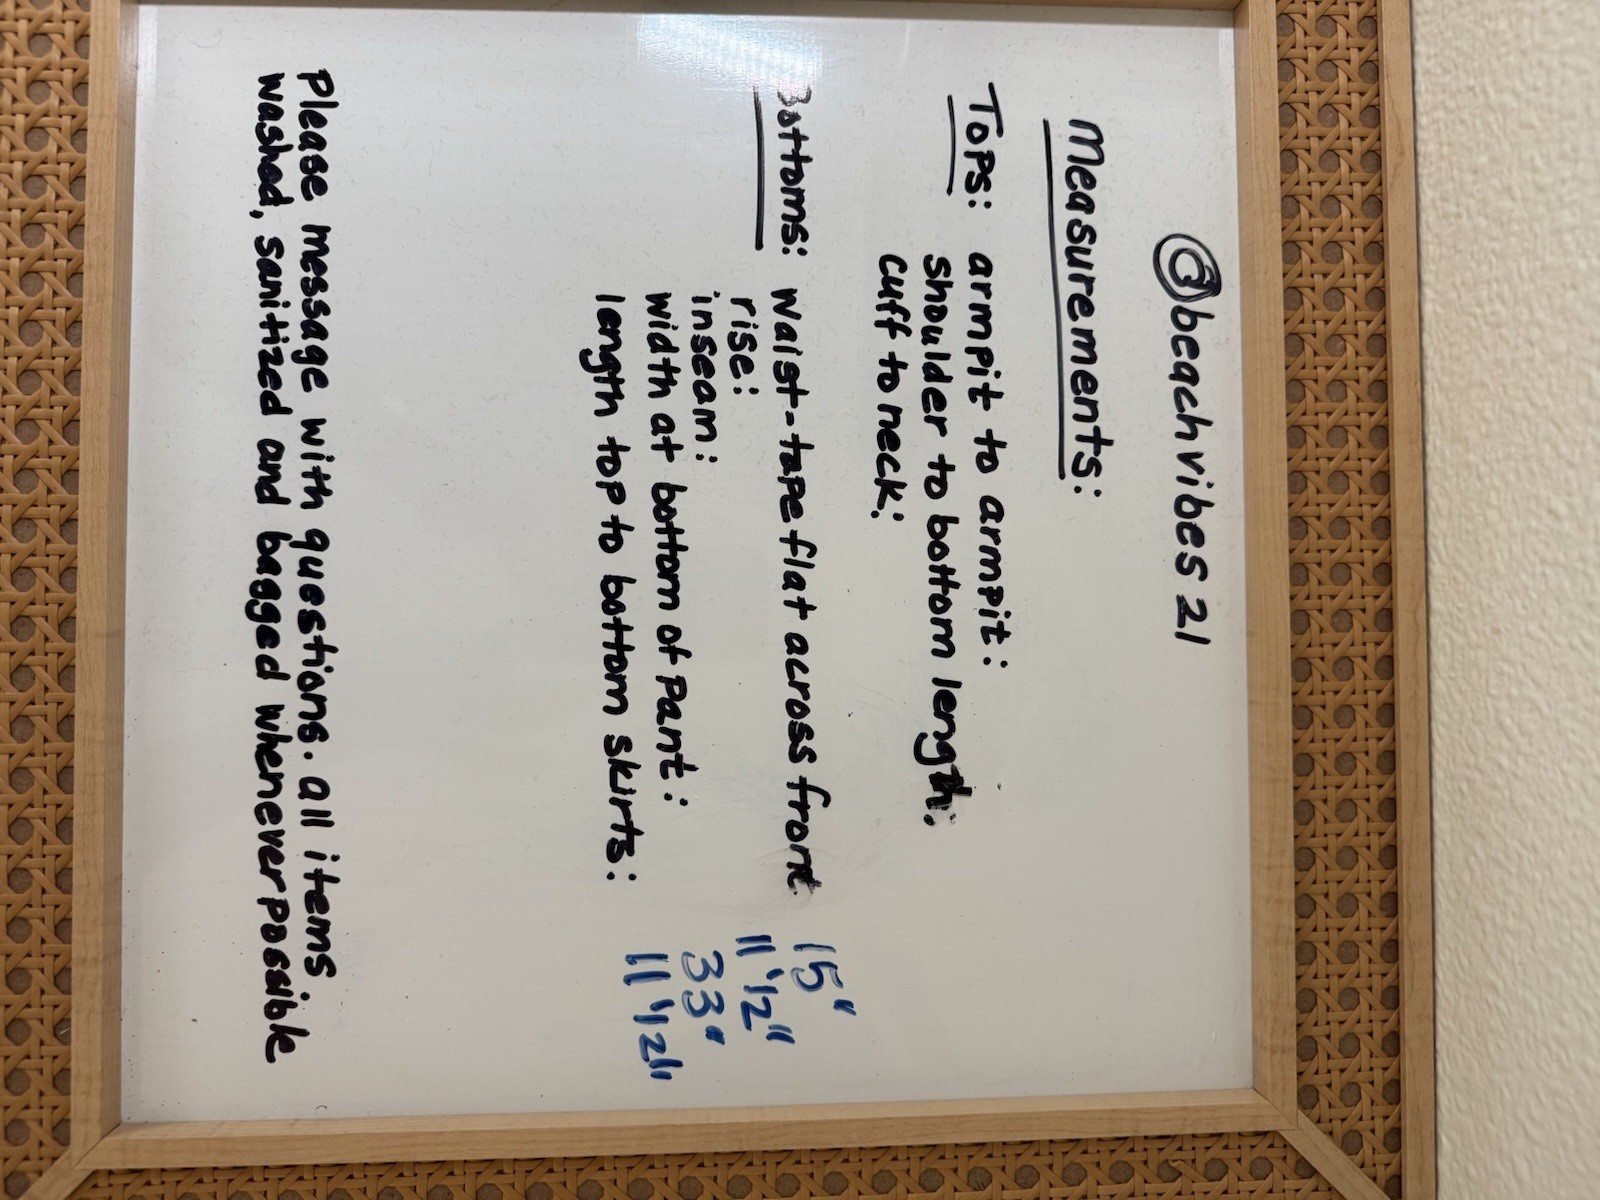 @beachvibes 21
Measurements:
Tops: armpit to armpit:
shoulder to bottom length:
cuff to neck:
Bottoms: waist-tape flat across front 15"
rise: 11 1/2"
inseam: 33"
width at bottom of pant: 11 1/2"
length top to bottom skirts:
Please message with questions. all items
washed, sanitized and bagged whenever possible